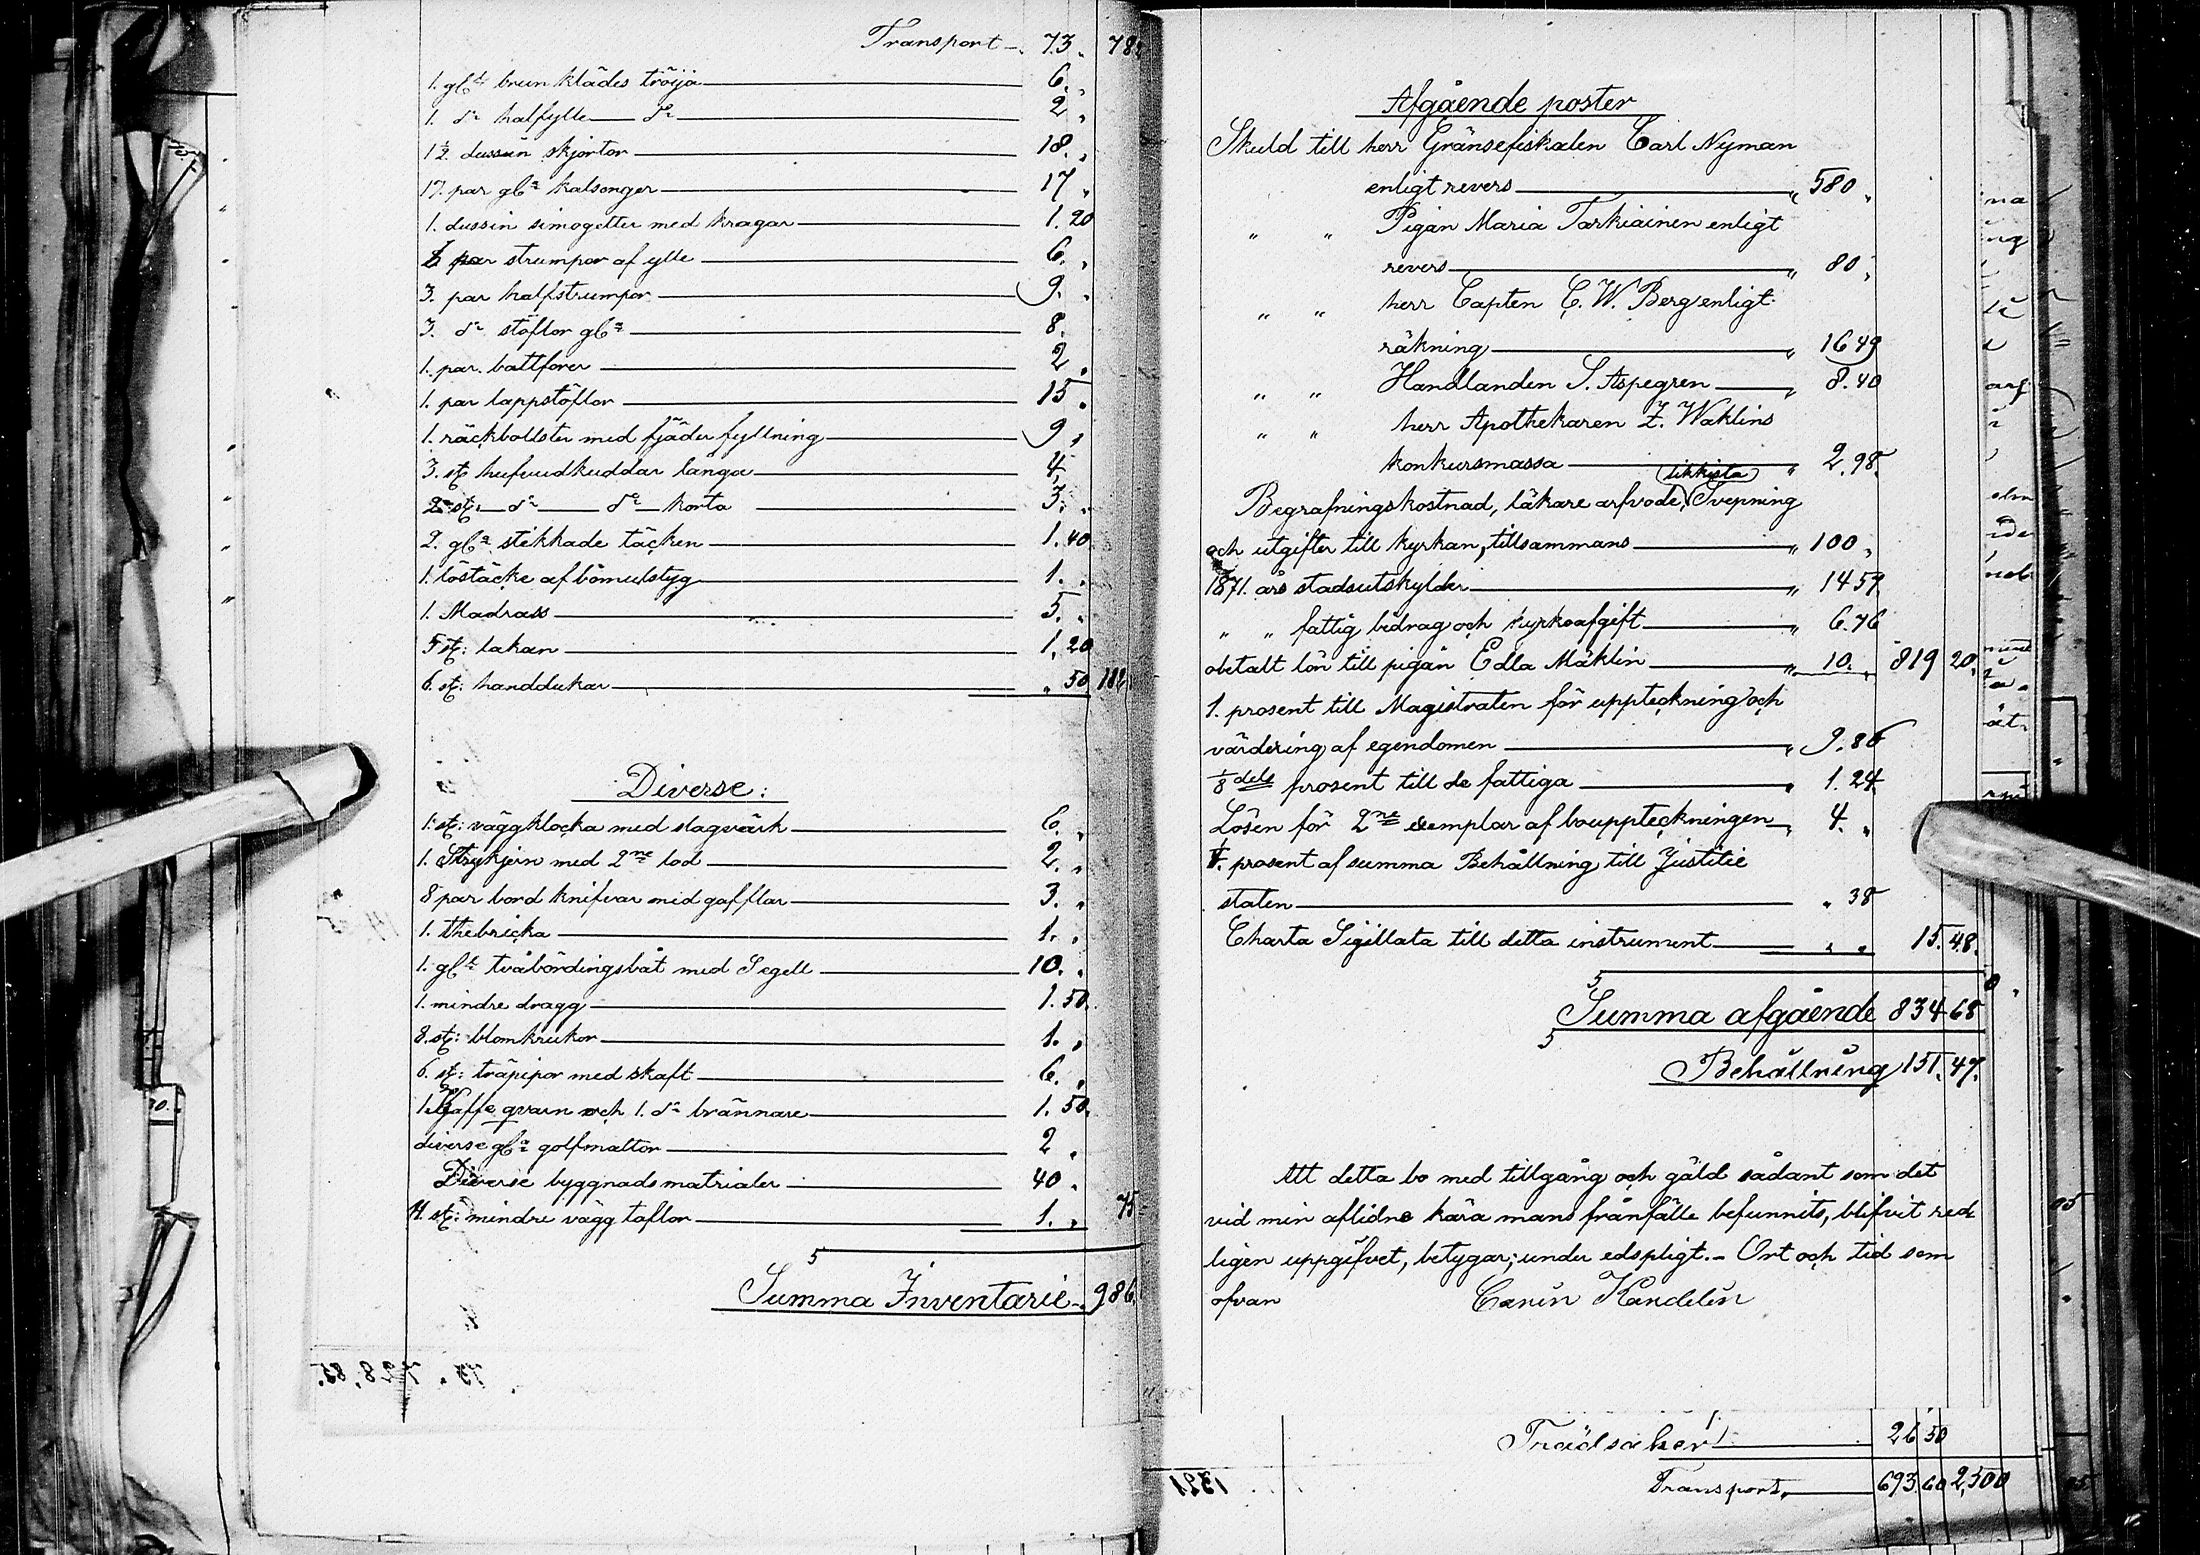 Transport 73. 78
1. gl:t brun klädes tröja 6. "
1. d:o halfylle d:o 2 "
1 1/2 dussin skjortor 18. "
17. par gl:a kalsonger 17 "
1. dussin simogetter med kragar 1. 20
6 par strumpor af ylle 6. "
3. par halfstrumpor 9. "
3. d:o stöflor gl:a 8.
1. par. battforer 2 "
1. par lappstöflor 15. "
1. räckbollster med fjäder fyllning 9 "
3. st hufvudkuddar långa 4,
2 st: d:o d:o korta 3. "
2. gl:a stikkade täcken 1. 40
1. löstäcke af bomulstyg 1. "
1. Madrass 5. "
5 st: lakan 1. 20
6. st: handdukar " 50 182
Diverse:
1. st: väggklocka med slagvärk 6. "
1. Strykjern med 2ne lod 2. "
8 par bord knifvar med gafflar 3. "
1. thebricka 1. "
1. gl:t tvåbördingsbåt med Segell 10. "
1. mindre dragg 1. 50.
8. st: blomkrukor 1. "
6. st: träpipor med skaft 6. "
1. Kaffe qvarn och 1. d:o brännare 1. 50.
diverse gl:a golfmattor 2 "
Diverse byggnads matrialer 40 "
4. st: mindre vägg taflor 1. " 75
Summa Inventarie 986.
Afgående poster
Skuld till herr Gränsefiskalen Carl Nyman
enligt revers " 580 "
" " Pigan Maria Tarkiainen enligt
revers " 80 "
" " herr Capten C. W. Berg enligt
räkning " 16 49
" " Handlanden S. Aspegren " 8. 40
" " herr Apothekaren Z. Waklins
konkursmassa " 2. 98.
likkista
Begrafningskostnad, läkare arfvode, Svepning
och utgifter till kyrkan, tillsammans " 100 "
1871. års stadsutskylder " 14 57
" " fattig bidrag och kyrkoafgift " 6. 76
obetalt lön till pigan Edla Mäklin " 10. " 819 20.
1. prosent till Magistraten för uppteckning och
värdering af egendomen " 9. 86
1/8 dels prosent till de fattiga " 1. 24
Lösen för 2ne exemplar af bouppteckningen " 4. "
1/4 prosent af summa Behållning till Justitie
staten " 38
Charta Sigillata till detta instrument " " 15. 48.
Summa afgående 834 68
Behållning 151. 47.
Att detta bo med tillgång och gäld sådant som det
vid min aflidne kära mans frånfälle befunnits, blifvit red
ligen uppgifvet, betygar, under edspligt. - Ort och tid som
ofvan Carin Kandelin
Trädsaker 26 50
Transport 693. 60 2,500